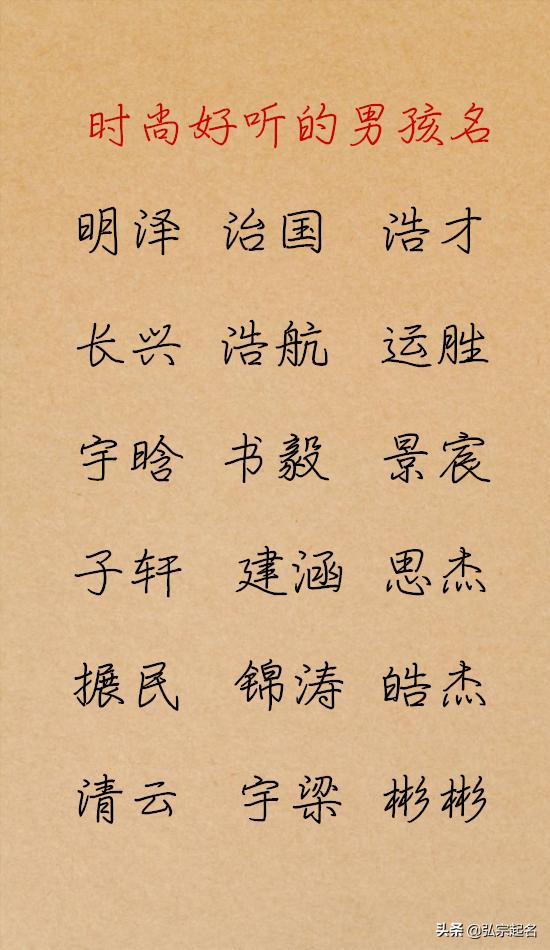 时尚好听的男孩名
明泽 治国 浩才
长兴 浩航 运胜
宇晗 书毅 景宸
子轩 建涵 思杰
搌民 锦涛 皓杰
清云 宇梁 彬彬
头条 @弘宗起名